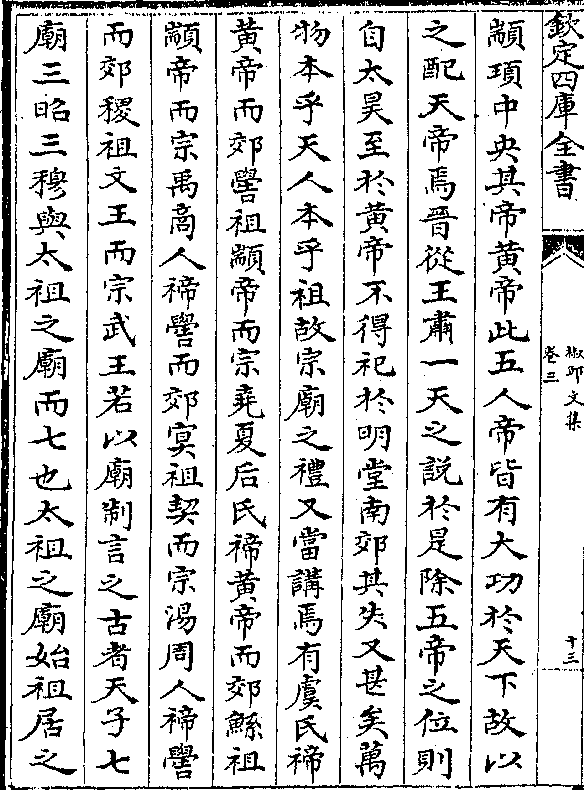 欽定四庫全書
椒邱文集
卷三
十三
顓頊中央其帝黄帝此五人帝皆有大功於天下故以
之配天帝焉晉從王肅一天之說於是除五帝之位則
自太昊至於黄帝不得祀於明堂南郊其失又甚矣萬
物本乎天人本乎祖故宗廟之禮又當講焉有虞氏禘
黄帝而郊嚳祖顓帝而宗堯夏后氏禘黄帝而郊鯀祖
顓帝而宗禹商人禘嚳而郊冥祖契而宗湯周人禘嚳
而郊稷祖文王而宗武王若以廟制言之古者天子七
廟三昭三穆與太祖之廟而七也太祖之廟始祖居之